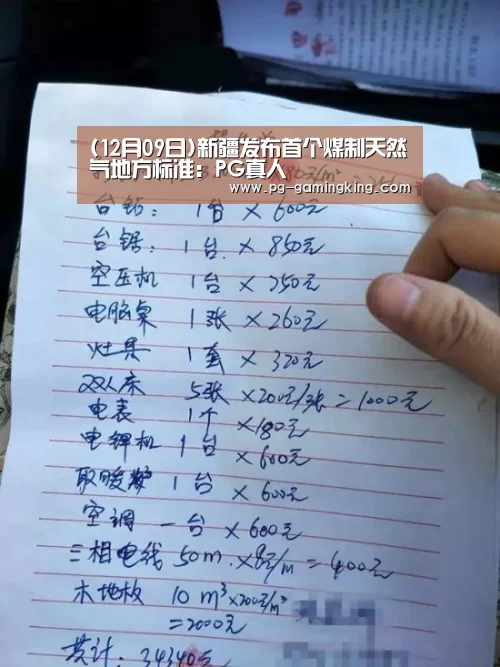 (12月09日)新疆发布首个煤制天然
气地方标准：PG真人
www.pg-gamingking.com
台钻：1台×600元
台锯：1台×850元
空压机 1台×750元
电脑桌 1张×260元
灶具 1套×320元
双人床 5张×200元/张=1000元
电表 1个×180元
电焊机 1台×600元
取暖炉 1台×600元
空调 一台×600元
三相电线 50m×8元/m=400元
木地板 10m³×200元/m³
=2000元
共计：34340